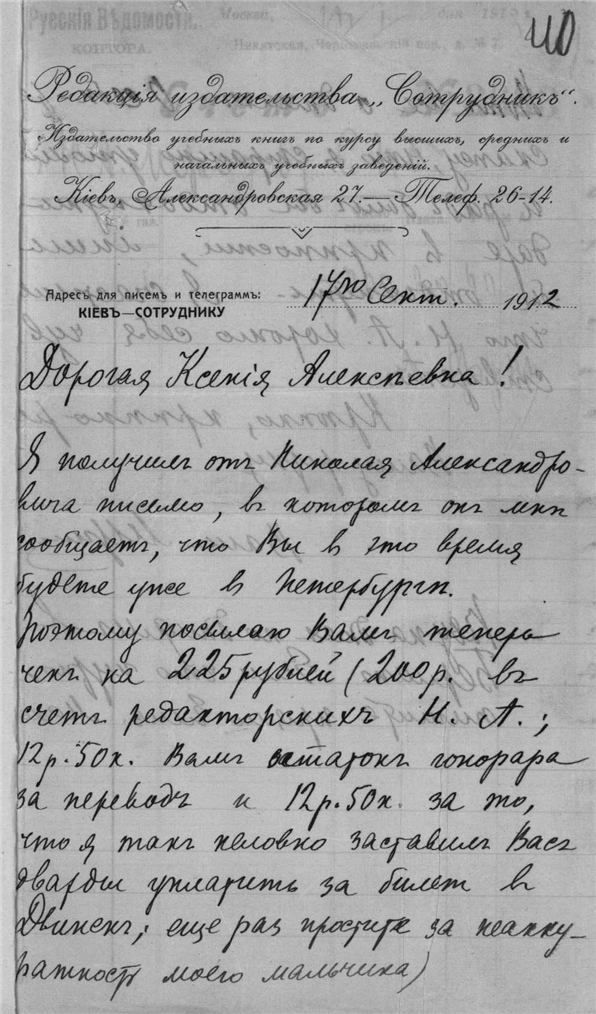 Русскiя Вѣдомости.
Москва,
КОНТОРА.
40
Редакцiя издательства „Сотрудникъ“.
Издательство учебныхъ книгъ по курсу высшихъ, среднихъ и
начальныхъ учебныхъ заведенiй.
Кiевъ, Александровская 27.—Телеф. 26-14.
Адресъ для писемъ и телеграммъ:
КIЕВЪ—СОТРУДНИКУ
17го Сент. 1912
Дорогая Ксенiя Алексѣевна!
Я получилъ отъ Николая Александро-
вича письмо, въ которомъ онъ мнѣ
сообщаетъ, что Вы в это время
будете уже в Петербургѣ.
Поэтому посылаю Вамъ теперь
чекъ на 225 рублей (200 р. въ
счетъ редакторскихъ Н. А.;
12 р. 50 к. Вамъ остатокъ гонорара
за переводъ и 12 р. 50 к. за то,
что я такъ неловко заставилъ Васъ
дважды уплатить за билет в
Двинскъ; еще раз простите за неакку-
ратность моего мальчика)